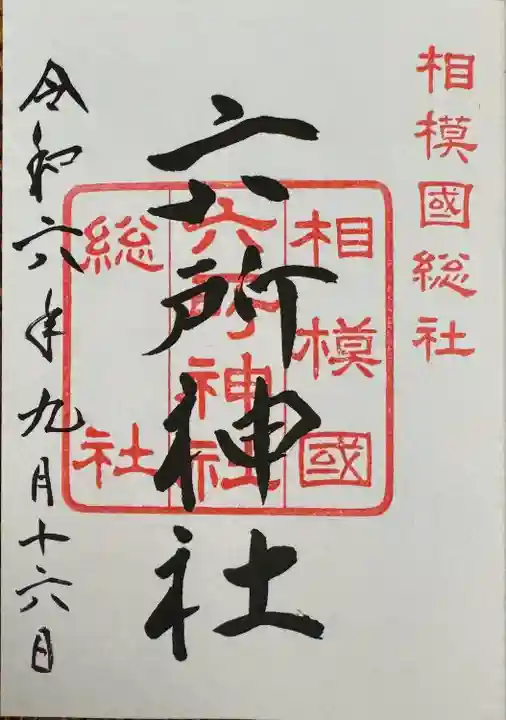 相模國総社
相模國
六所神社
総社
六所神社
令和六年九月十六日